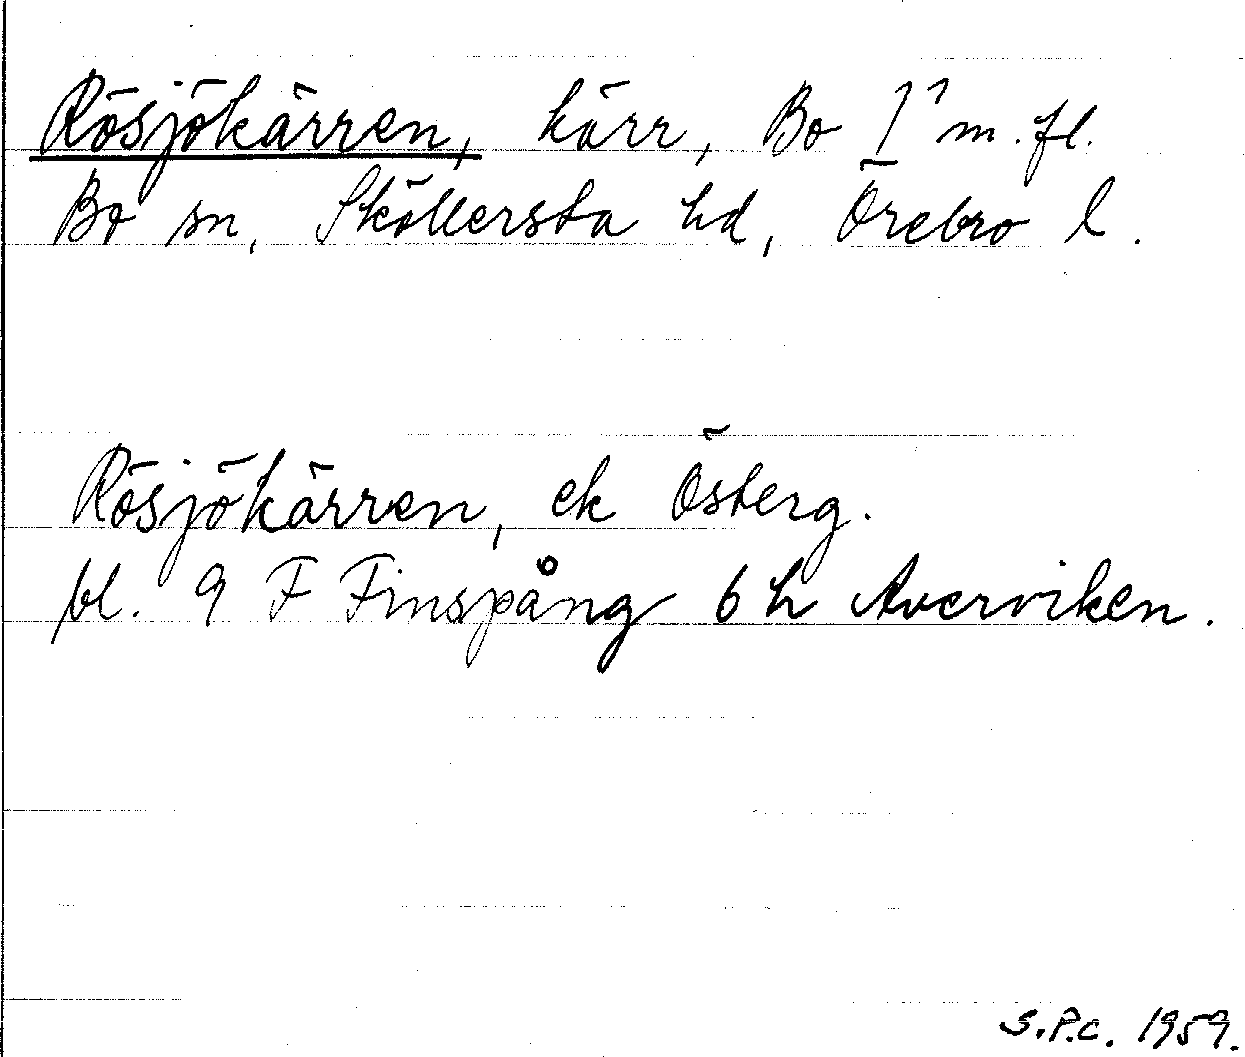 Rösjökärren, kärr, Bo 1¹ m.fl.
Bo sn, Sköllersta hd, Örebro l.
Rösjökärren, ek Österg.
bl. 9 F Finspång 6 h Averviken.
S.P.C. 1959.